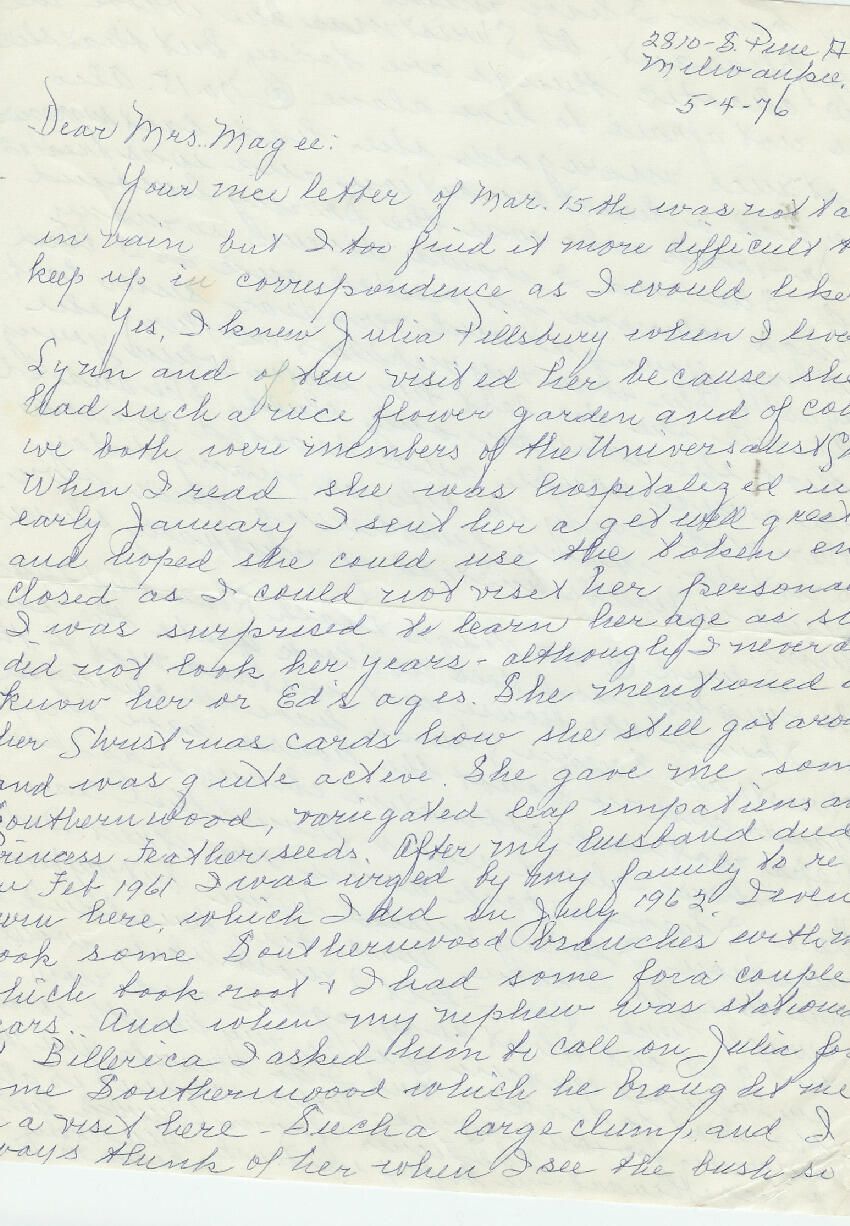 2810-S. Pine A
Milwaukee,
5-4-76
Dear Mrs. Magee:
Your nice letter of Mar. 15th was not ta
in vain but I too find it more difficult t
keep up in correspondence as I would like
Yes, I knew Julia Pillsbury when I live
Lynn and often visited her because she
had such a nice flower garden and of cou
we both were members of the Universalist Ch
When I read she was hospitalized in
early January I sent her a get well greet
and hoped she could use the token en
closed as I could not visit her persona
I was surprised to learn her age as s
did not look her years - although I never d
know her or Ed's ages. She mentioned
her Christmas cards how she still got arou
and was quite active. She gave me som
Southernwood, variegated leaf impatiens a
rincess Feather seeds. After my husband died
n Feb 1961 I was urged by my family to re
urn here, which I did in July 1962. I even
ook some Southernwood branches with m
hich took root & I had some for a couple
ears. And when my nephew was stationed
Billerica I asked him to call on Julia fo
me Southernwood which he brought me
a visit here - Such a large clump and I
ways think of her when I see the bush so